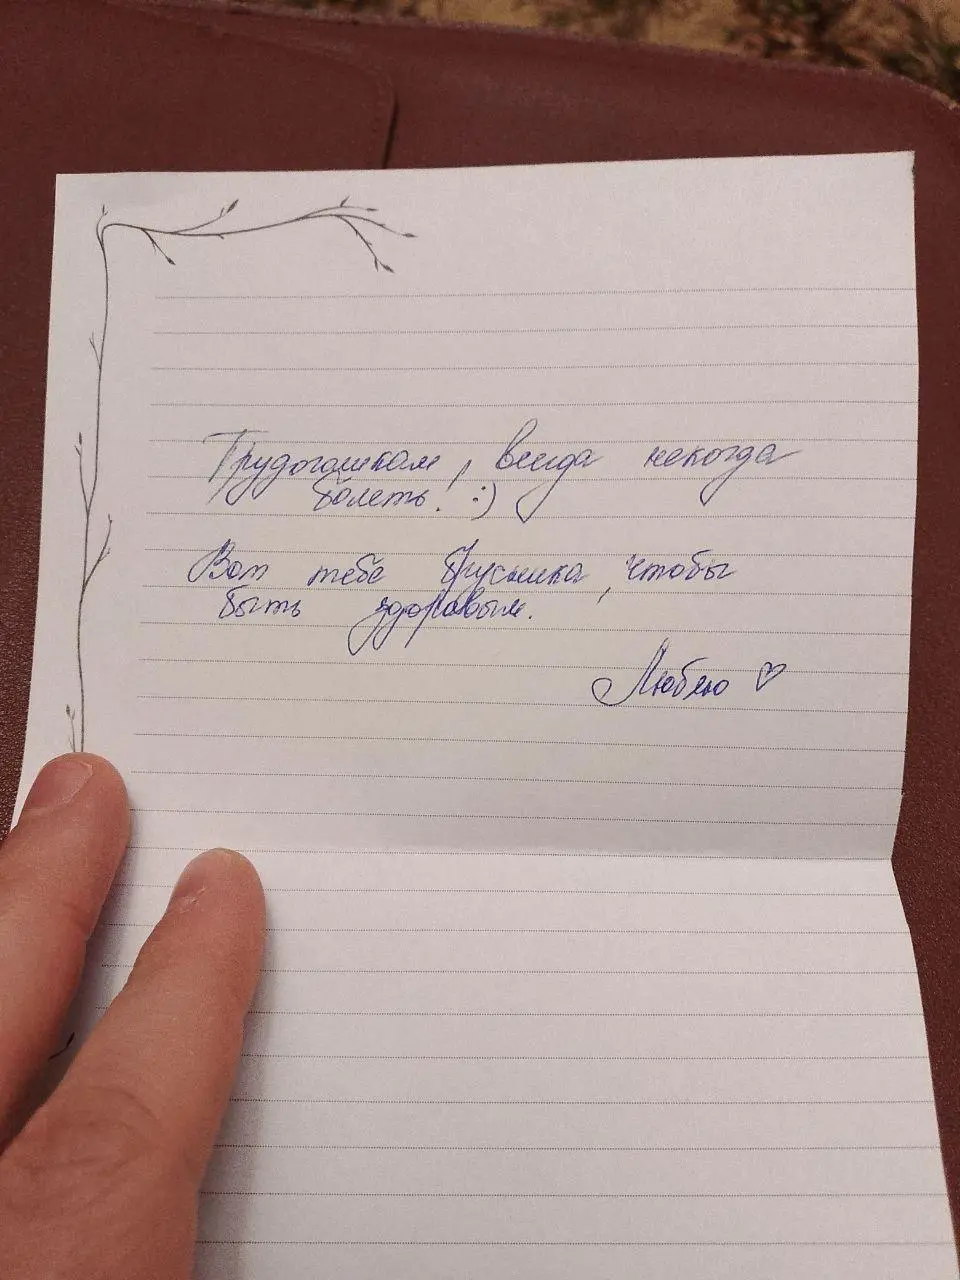 Трудогошкам, всегда некогда
болеть! :)
Вот тебе брусника, чтобы
быть здоровым.
Люблю ♡